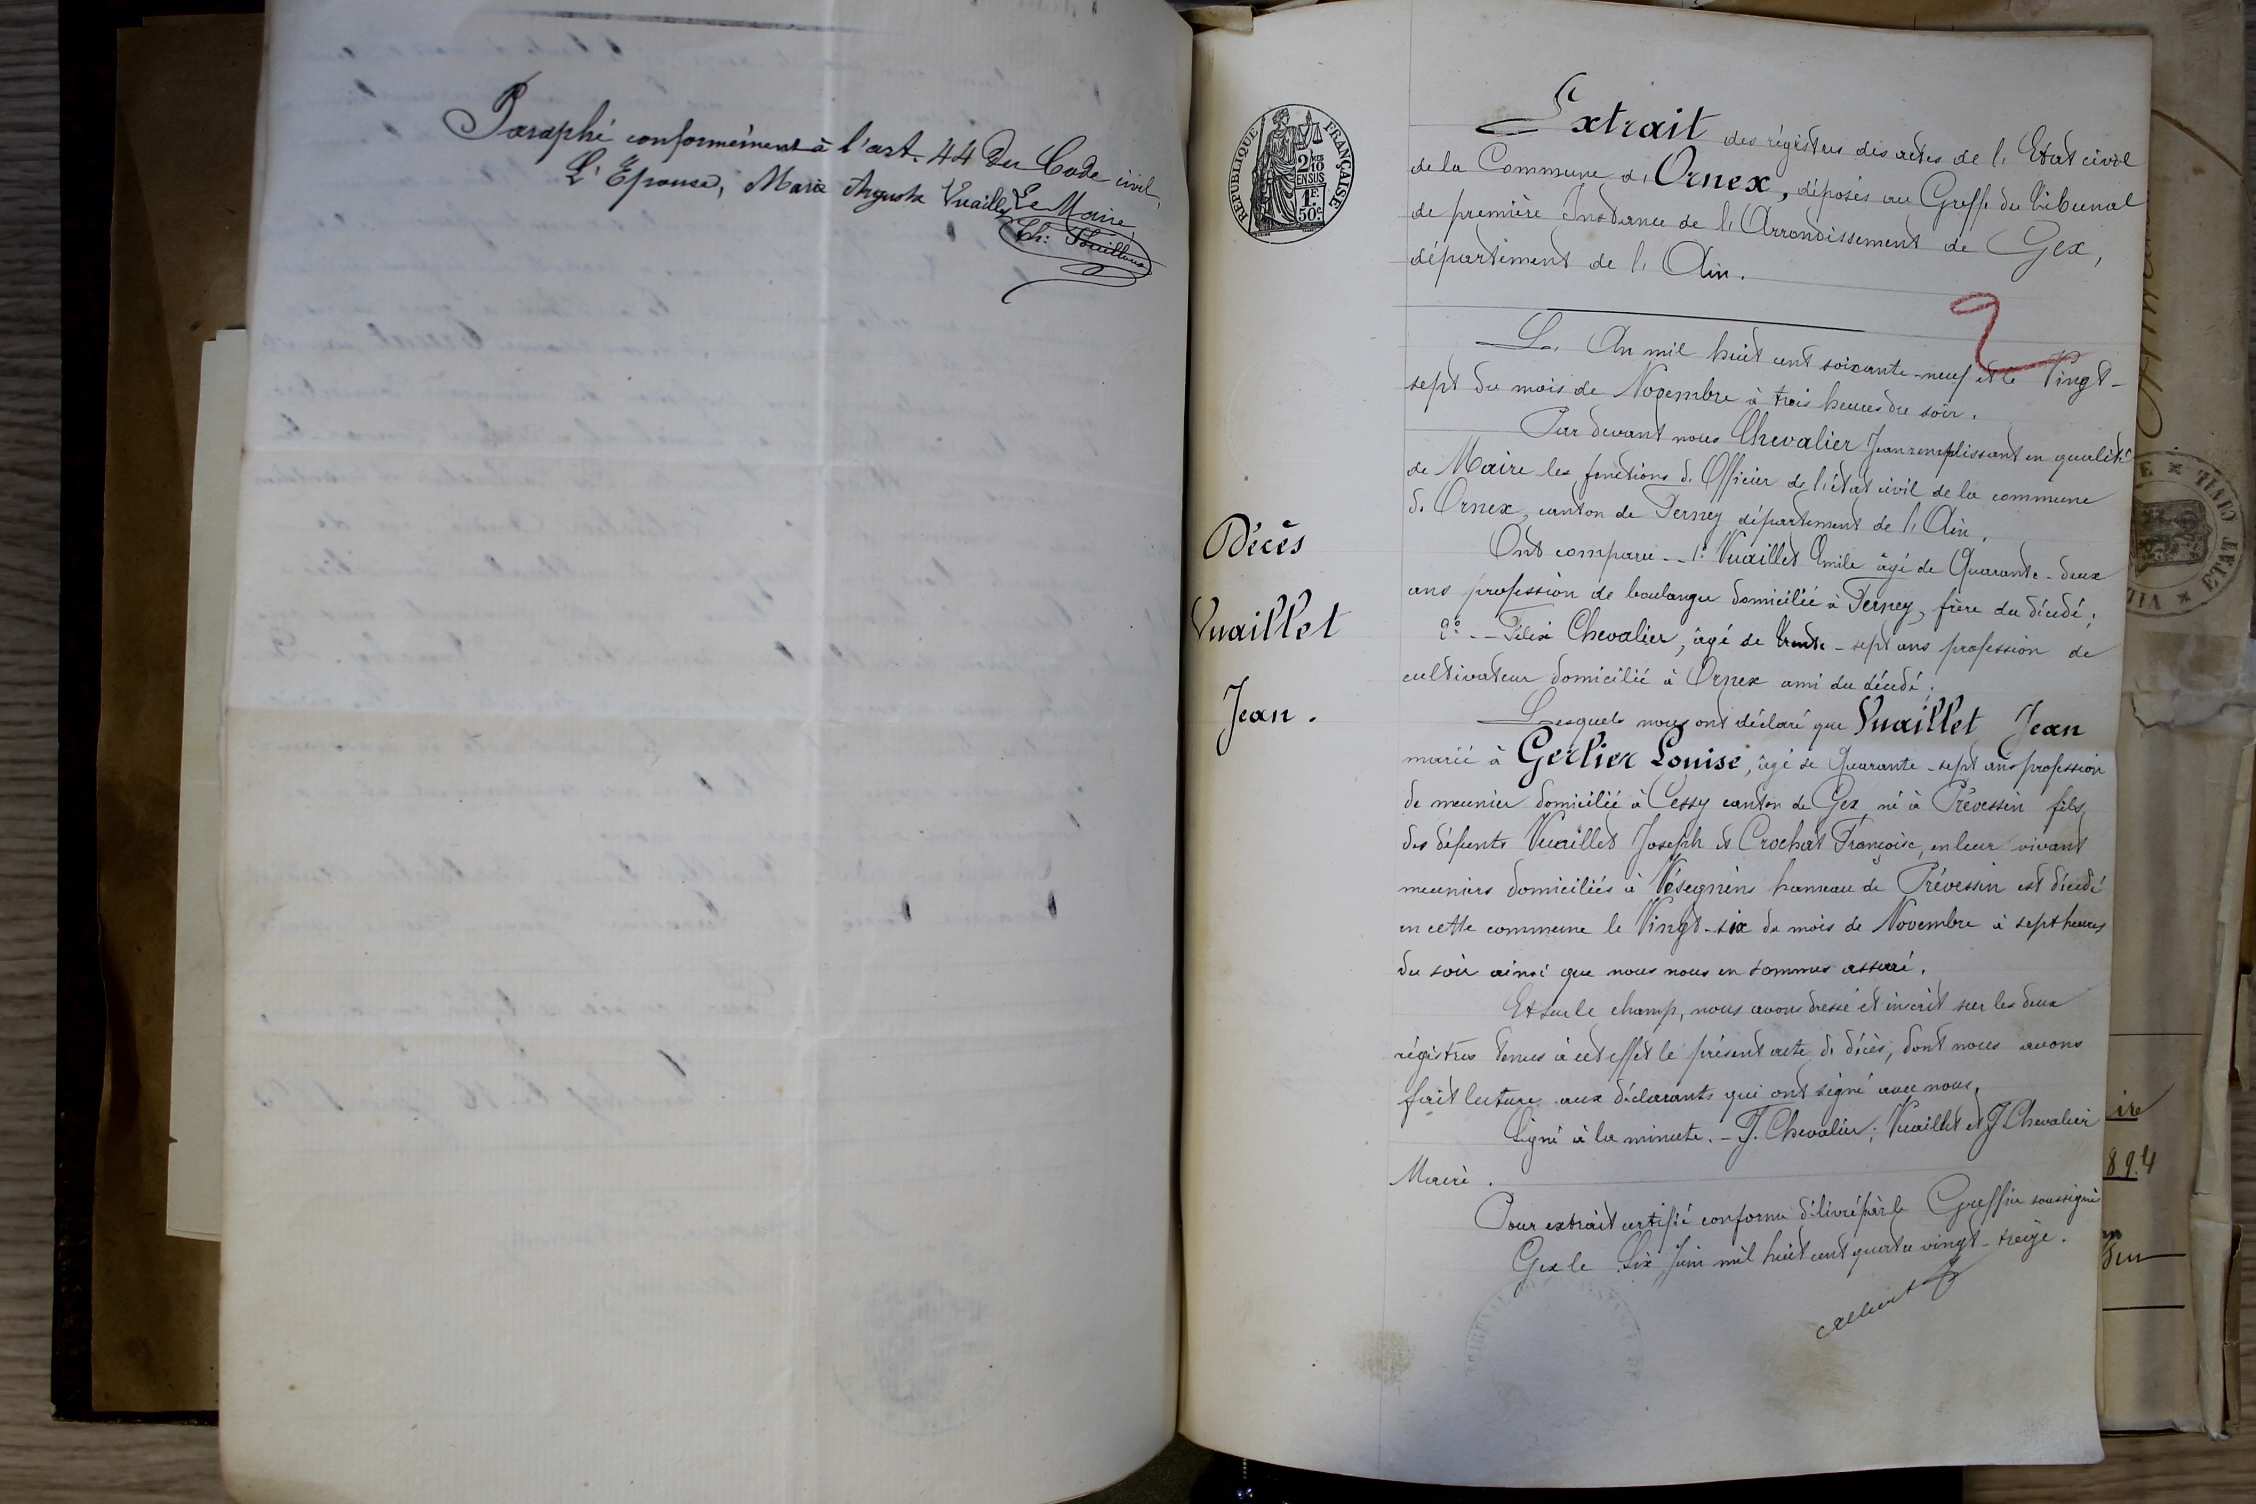 Paraphé conformément à l'art. 44 du Code civil,
L'Epouse, Marie Augusta Vuaillet Le Maire
RÉPUBLIQUE FRANÇAISE
2/10 EN SUS
1F. 50c.
Extrait des régistres des actes de l'Etat civil
de la Commune d'Ornex, déposés au Greffe du Tribunal
de première Instance de l'Arrondissement de Gex,
département de l'Ain.
2
L'An mil huit cent soixante-neuf et le Vingt-
sept du mois de Novembre à trois heures du soir.
Par devant nous Chevalier Jean remplissant en qualité
de Maire les fonctions d'Officier de l'état civil de la commune
d'Ornex, canton de Ferney département de l'Ain.
Ont comparu -- 1° Vuaillet Emile âgé de Quarante-deux
ans profession de boulanger domicilié à Ferney, frère du décédé;
2° -- Félix Chevalier, âgé de trente-sept ans profession de
cultivateur domicilié à Ornex ami du décédé;
Décès
Vuaillet
Jean.
Lesquels nous ont déclaré que Vuaillet Jean
marié à Gerlier Louise, âgé de Quarante-sept ans profession
de meunier domicilié à Cessy canton de Gex né à Prévessin fils
des défunts Vuaillet Joseph et Crochat Françoise, en leur vivant
meuniers domiciliés à Vésegnins hameau de Prévessin est décédé
en cette commune le Vingt-six du mois de Novembre à sept heures
du soir ainsi que nous nous en sommes assuré.
Et sur le champ, nous avons dressé et inscrit sur les deux
régistres tenus à cet effet le présent acte de décès, dont nous avons
fait lecture aux déclarants qui ont signé avec nous.
Signé à la minute. - F. Chevalier; Vuaillet et J. Chevalier
Maire.
Pour extrait certifié conforme délivré par le Greffier soussigné
Gex le Six Juin mil huit cent quatre vingt-treize.
ETAT CIVIL
ire
894